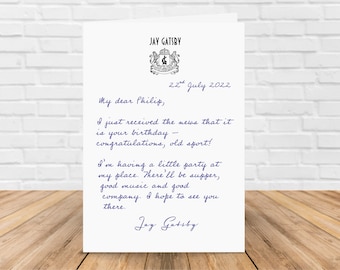 JAY GATSBY
22nd July 2022
My dear Philip,
I just received the news that it
is your birthday –
congratulations, old sport!
I'm having a little party at
my place. There'll be supper,
good music and good
company. I hope to see you
there
Jay Gatsby